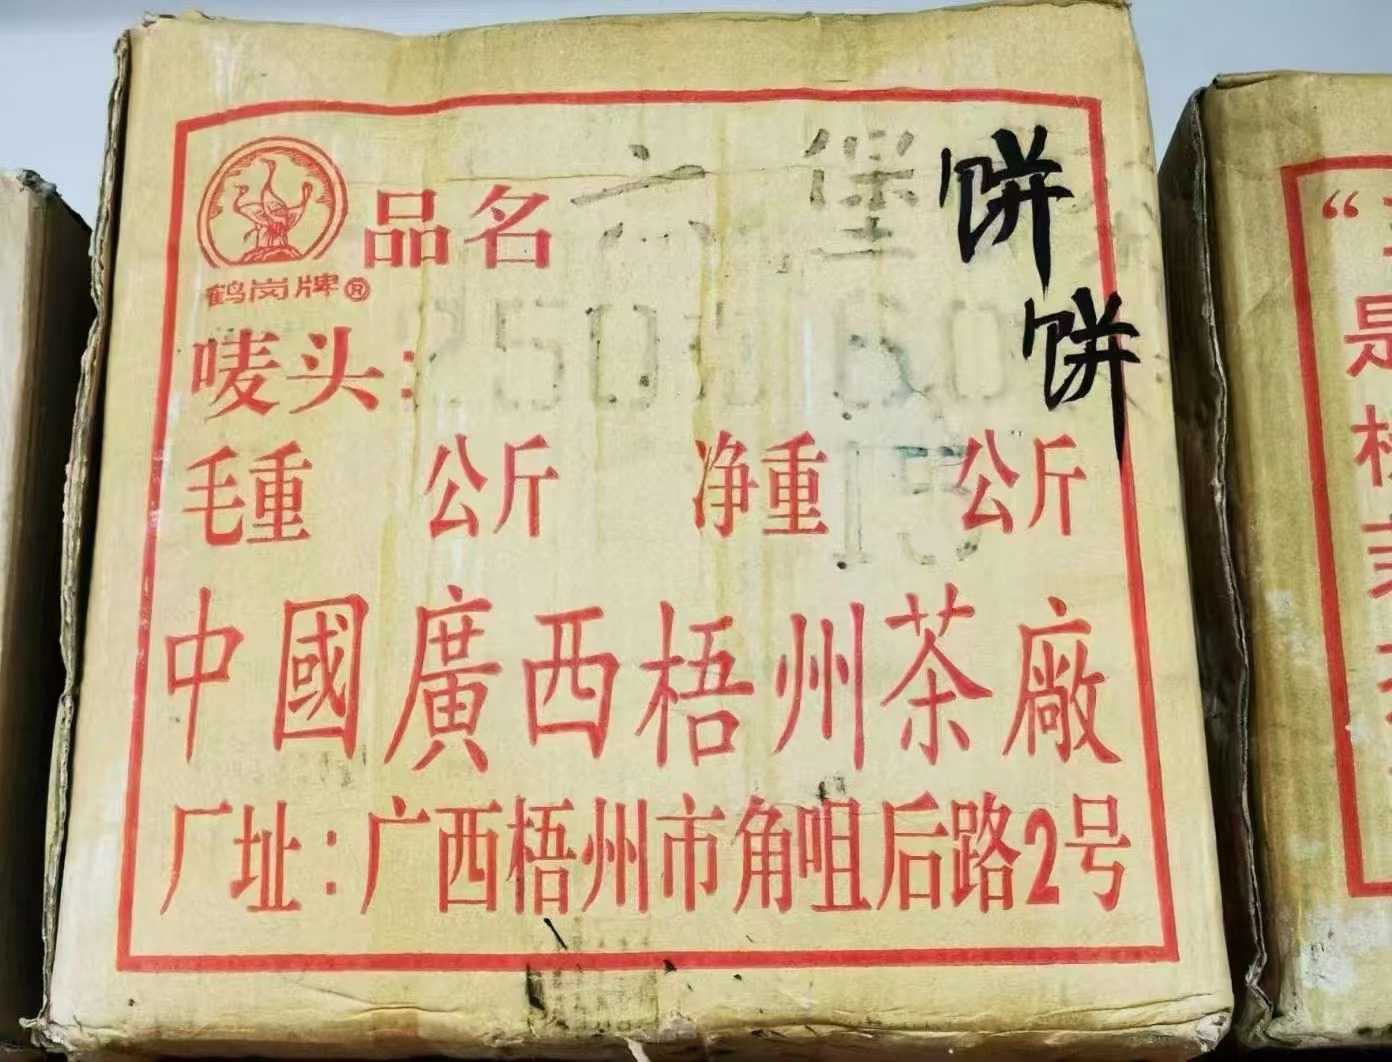 鹤岗牌®
品名 六堡 饼
唛头: 250 60 饼
毛重 公斤 净重 15 公斤
中國廣西梧州茶廠
厂址:广西梧州市角咀后路2号
“
是